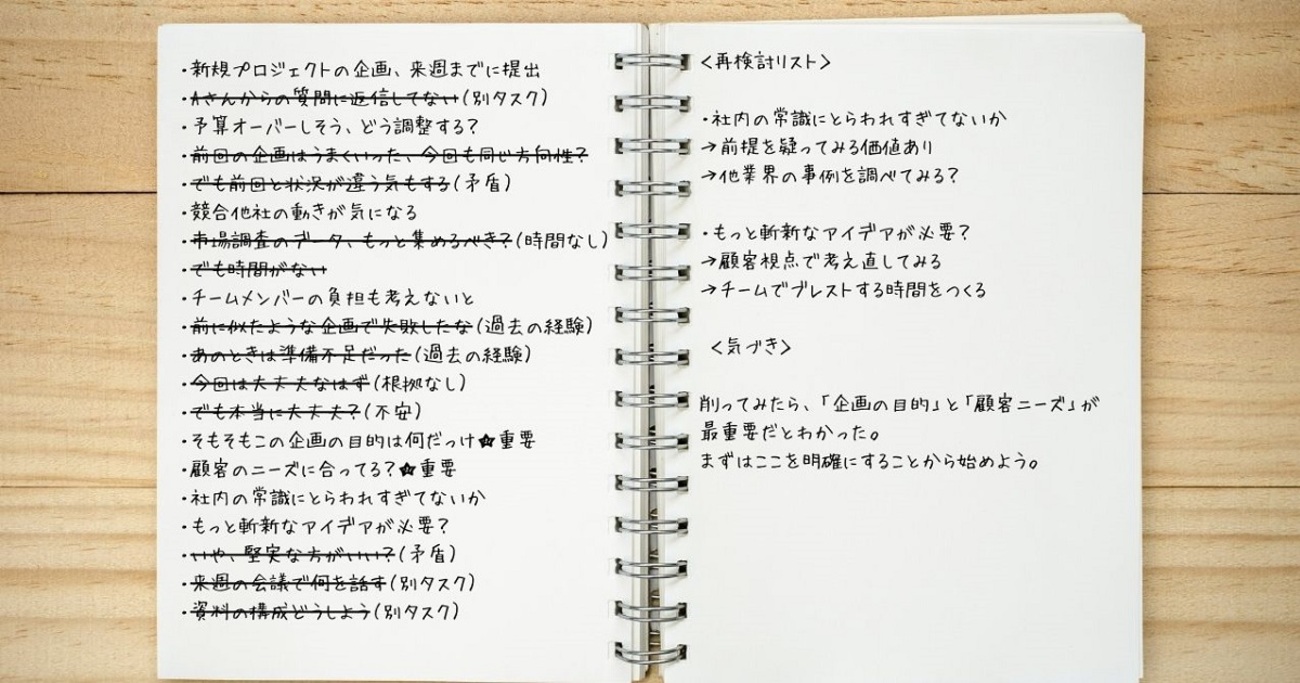 ・新規プロジェクトの企画、来週までに提出
・Aさんからの質問に返信してない(別タスク)
・予算オーバーしそう、どう調整する?
・前回の企画はうまくいった、今回も同じ方向性?
・でも前回と状況が違う気もする(矛盾)
・競合他社の動きが気になる
・市場調査のデータ、もっと集めるべき?(時間なし)
・でも時間がない
・チームメンバーの負担も考えないと
・前に似たような企画で失敗したな(過去の経験)
・あのときは準備不足だった(過去の経験)
・今回は大丈夫なはず(根拠なし)
・でも本当に大丈夫?(不安)
・そもそもこの企画の目的は何だっけ★重要
・顧客のニーズに合ってる?★重要
・社内の常識にとらわれすぎてないか
・もっと斬新なアイデアが必要?
・いや、堅実な方がいい?(矛盾)
・来週の会議で何を話す(別タスク)
・資料の構成どうしよう(別タスク)
<再検討リスト>
・社内の常識にとらわれすぎてないか
→前提を疑ってみる価値あり
→他業界の事例を調べてみる?
・もっと斬新なアイデアが必要?
→顧客視点で考え直してみる
→チームでブレストする時間をつくる
<気づき>
削ってみたら、「企画の目的」と「顧客ニーズ」が
最重要だとわかった。
まずはここを明確にすることから始めよう。